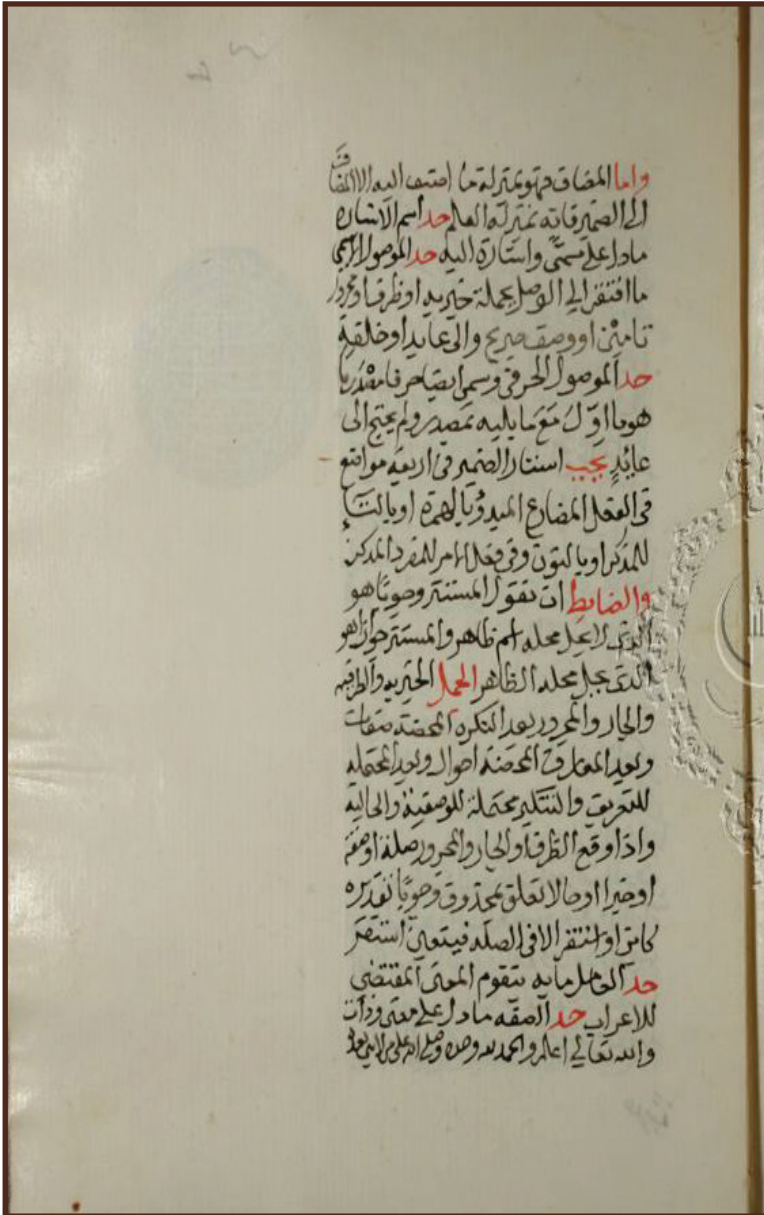 واما المضاف فهو بمنزلة ما اضيف اليه الا المضاف
الى الضمير فانه بمنزلة العلم حد اسم الاشارة
ما دل على مسمى واشارة اليه حد الموصول الاسمي
ما افتقر الى الوصل بجملة خبرية او ظرف او مجرور
تامين او وصف صريح والى عايد او خلفه
حد الموصول الحرفي وسمي ايضا حرفا مصدريا
هو ما اول مع ما يليه بمصدر ولم يحتج الى
عائد يجب استتار الضمير في اربعة مواضع
في الفعل المضارع المبدؤ بالهمزة او بالتاء
للمذكر او بالنون وفي فعل الامر للمفرد المذكر
والضابط ان تقول المستتر وجوبا هو
الذي لا يحل محله اسم ظاهر والمستتر جوازا هو
الذي يحل محله الظاهر الجمل الخبرية والظرفية
والجار والمجرور بعد النكرة المحضة صفات
وبعد المعارف المحضة احوال وبعد المحتملة
للتعريف والتنكير محتملة للوصفية والحالية
واذا وقع الظرف او الجار والمجرور صلة او صفة
او خبرا او حالا تعلق بمحذوف وجوبا تقديره
كائن او استقر الا في الصله فيتعين استقر
حد العامل ما به يتقوم المعنى المقتضي
للاعراب حد الصفه ما دل على معنى وذات
والله تعالى اعلم والحمد لله وحده وصلى الله على من لا نبي بعده